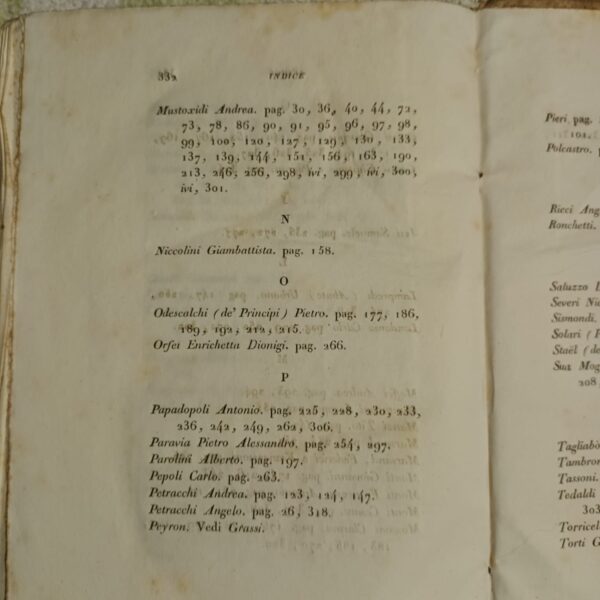 332 INDICE
Mustoxidi Andrea. pag. 30, 36, 40, 44, 72,
73, 78, 86, 90, 91, 95, 96, 97, 98,
99, 100, 120, 127, 129, 130, 133,
137, 139, 144, 151, 156, 163, 190,
213, 246, 256, 298, ivi, 299, ivi, 300,
ivi, 301.
N
Niccolini Giambattista. pag. 158.
O
Odescalchi (de' Principi) Pietro. pag. 177, 186,
189, 192, 212, 215.
Orfei Enrichetta Dionigi. pag. 266.
P
Papadopoli Antonio. pag. 225, 228, 230, 233,
236, 242, 249, 262, 306.
Paravia Pietro Alessandro. pag. 254, 297.
Parolini Alberto. pag. 197.
Pepoli Carlo. pag. 263.
Petracchi Andrea. pag. 123, 124, 147.
Petracchi Angelo. pag. 26, 318.
Peyron. Vedi Grassi.
Pieri pag.
101,
Polcastro.
Ricci Ang
Ronchetti.
Saluzzo
Severi Nic
Sismondi.
Solari (P
Staël (de
Sua Mag
208
Tagliabo
Tambron
Tassoni.
Tedaldi
303
Torricel
Torti G